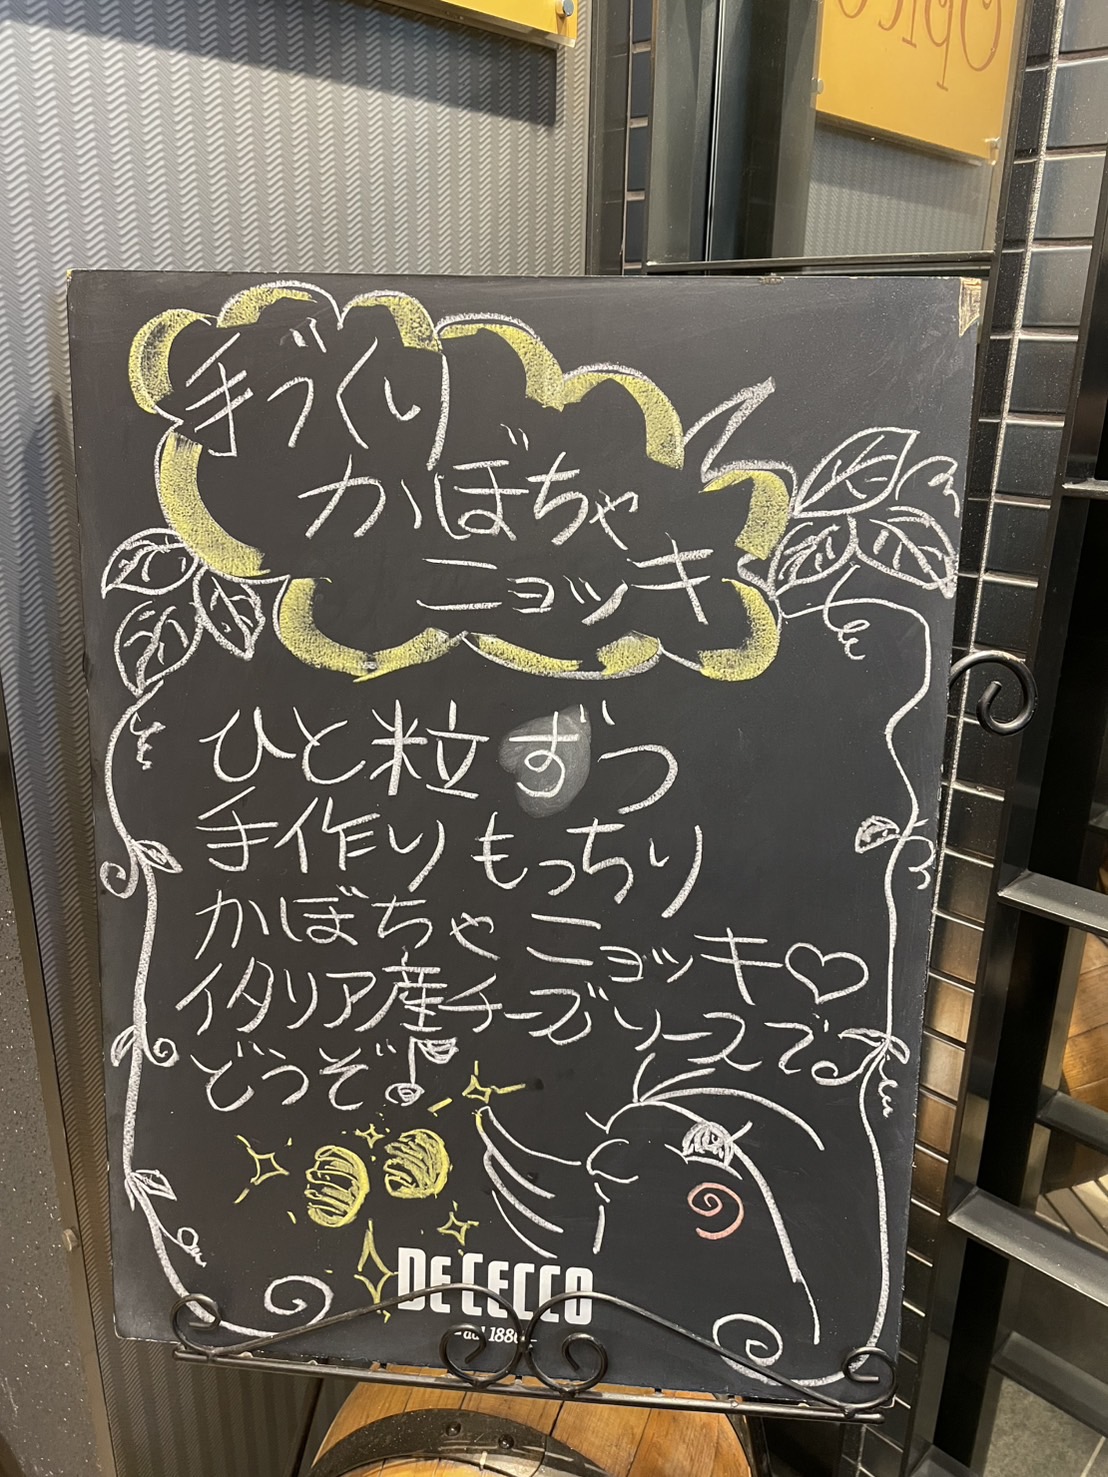 手づくり
かぼちゃ
ニョッキ
ひと粒ずつ
手作りもっちり
かぼちゃニョッキ♡
イタリア産チーズソースで
どうぞ♪
DE CECCO